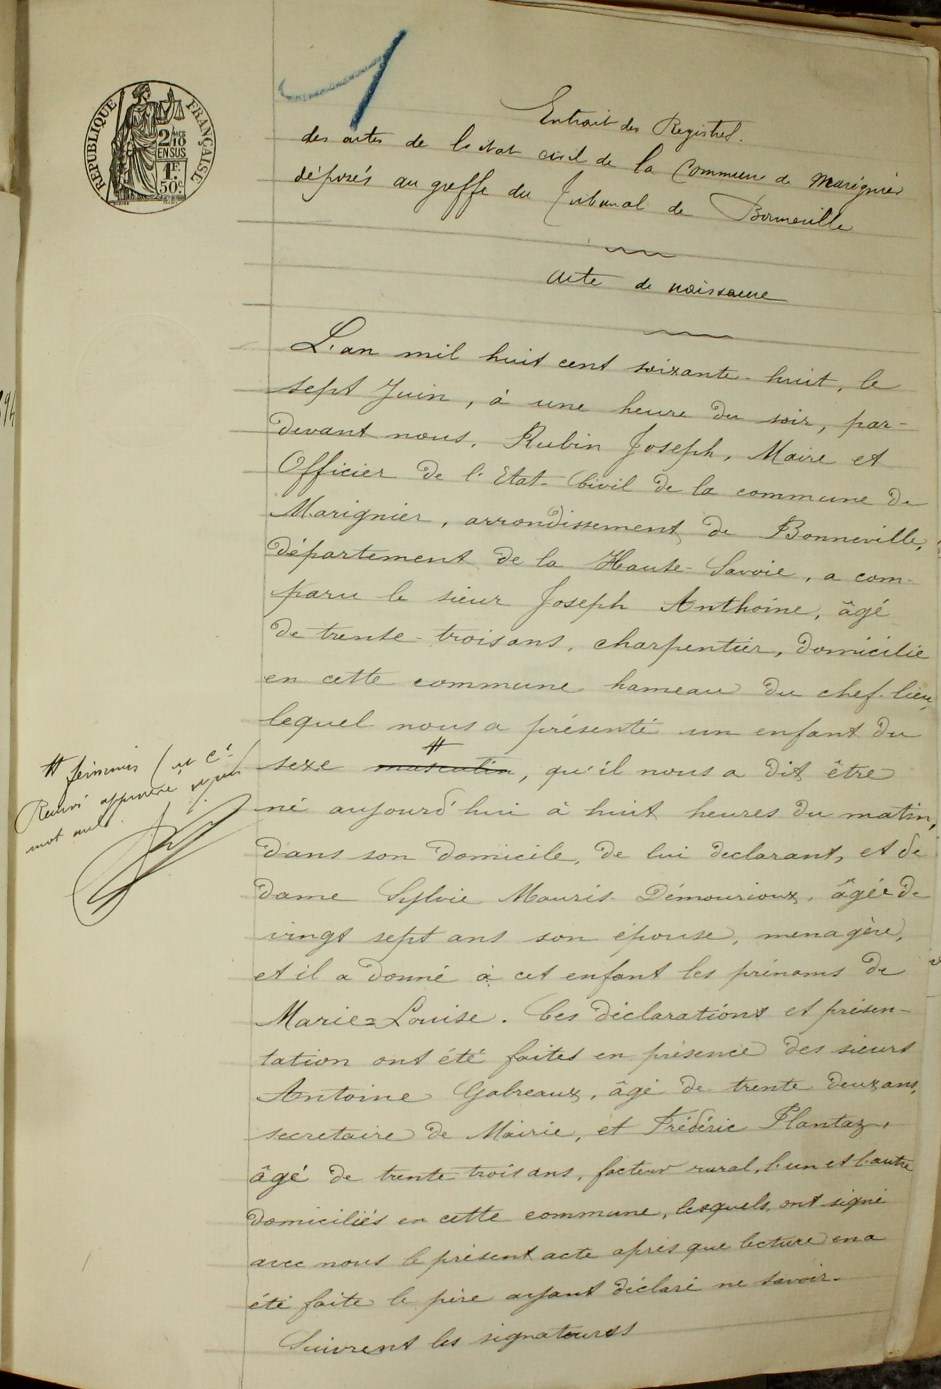 RÉPUBLIQUE FRANÇAISE
2/10
EN SUS
1F.
50c.
1
Extrait des Registres.
des actes de l'etat civil de la Commune de Marignier
déposés au greffe du Tribunal de Bonneville
acte de naissance
L'an mil huit cent soixante-huit, le
sept Juin, à une heure du soir, par-
devant nous, Rubin Joseph, Maire et
Officier de l'Etat-Civil de la commune de
Marignier, arrondissement de Bonneville,
département de la Haute-Savoie, a com-
paru le sieur Joseph Anthoine, âgé
de trente-trois ans, charpentier, domicilié
en cette commune hameau du chef-lieu,
lequel nous a présenté un enfant du
sexe masculin, qu'il nous a dit être
né aujourd'hui à huit heures du matin,
dans son domicile, de lui declarant, et de
dame Sylvie Mauris-Démourioux, âgée de
vingt sept ans son épouse, menagère,
et il a donné à cet enfant les prénoms de
Marie=Louise. Ces déclarations et présen-
tation ont été faites en présence des sieurs
Antoine Gabreaux, âgé de trente deux ans,
secretaire de Mairie, et Frédéric Plantaz,
âgé de trente-trois ans, facteur rural, l'un et l'autre
domiciliés en cette commune, lesquels ont signé
avec nous le présent acte après que lecture en a
été faite le père ayant déclaré ne savoir.
Suivent les signatures
# féminin
Renvoi approuvé
mot nul.